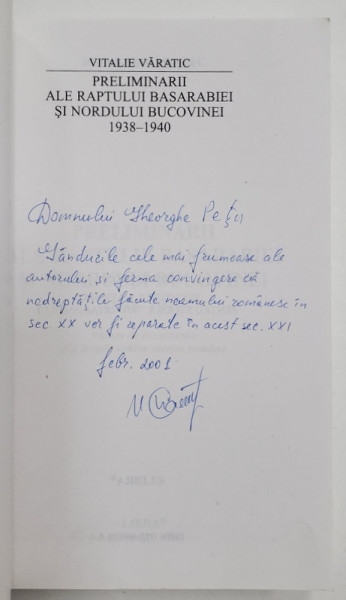 VITALIE VĂRATIC
PRELIMINARII
ALE RAPTULUI BASARABIEI
ŞI NORDULUI BUCOVINEI
1938–1940
Domnului Gheorghe
Gândurile cele mai frumoase ale
autorului și ferma convingere că
nedreptățile făcute neamului românesc în
sec XX vor fi reparate în acest sec. XXI
febr. 2001